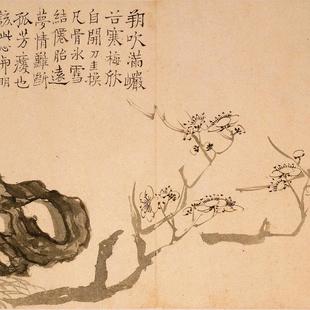 朔吹滿巖
谷寒梅欣
自開刀圭換
凡骨冰雪
結僊胎遠
夢情難斷
孤芳瘦也
該此心